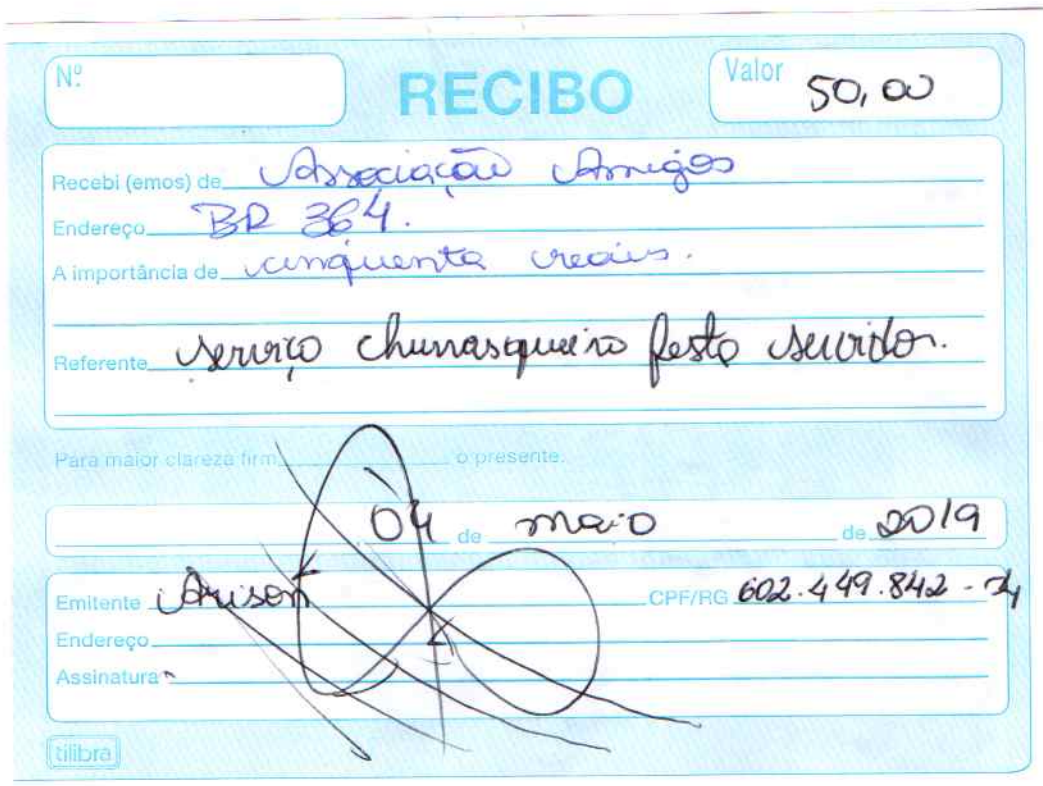 Nº
RECIBO
Valor 50,00
Recebi (emos) de Associação Amigos
Endereço BR 364.
A importância de cinquenta reais.
Referente serviço churrasqueiro festa servidor.
Para maior clareza firm o presente.
04 de maio de 2019
Emitente Arison CPF/RG 602.449.842-
Endereço
Assinatura
tilibra